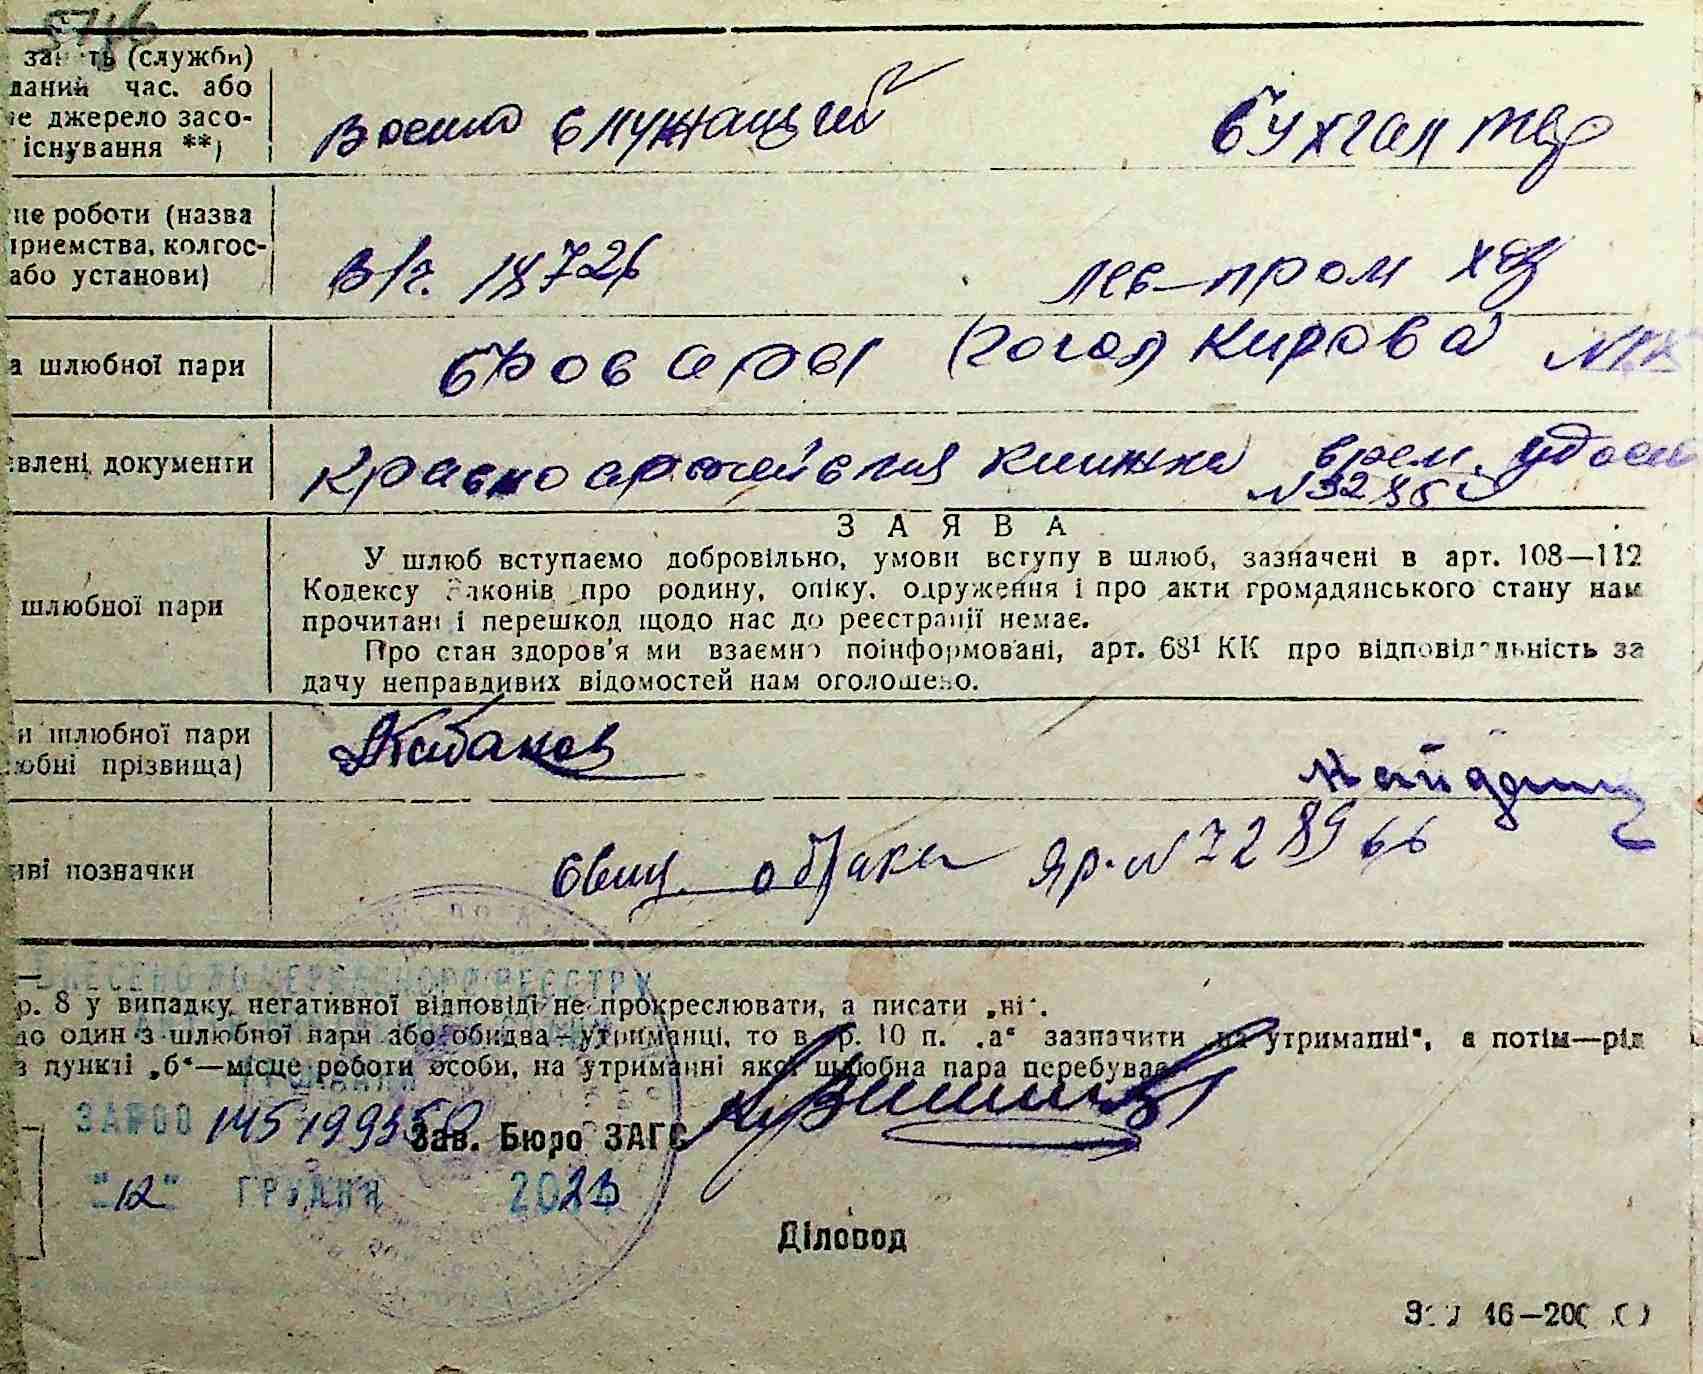 5746
занять (служби)
даний час. або
не джерело засо-
існування **)
Военнослужащий
бухгалтер
це роботи (назва
приемства, колгос-
або установи)
В/ч.
лес-пром хоз
а шлюбної пари
Бровары (Гогол) Кирова
влені документи
Красноармейская книжка врем. удост
З А Я В А
У шлюб вступаємо добровільно, умови вступу в шлюб, зазначені в арт. 108—112
Кодексу Законів про родину, опіку, одруження і про акти громадянського стану нам
прочитані і перешкод щодо нас до реєстрації немає.
шлюбної пари
Про стан здоров'я ми взаємно поінформовані, арт. 68¹ КК про відповідальність за
дачу неправдивих відомостей нам оголошено.
и шлюбної пари
любні прізвища)
Кабаков
иві позначки
свид. о браке Яр. N
ВНЕСЕНО ДО ДЕРЖАВНОГО РЕЄСТРУ
р. 8 у випадку негативної відповіді не прокреслювати, а писати „ні".
що один з шлюбної пари або обидва—утриманці, то в гр. 10 п. „а" зазначити „на утриманні", а потім—рід
в пункті „б"—місце роботи особи, на утриманні якої шлюбна пара перебуває
Зав. Бюро ЗАГС
"12" ГРУДНЯ 2023
Діловод